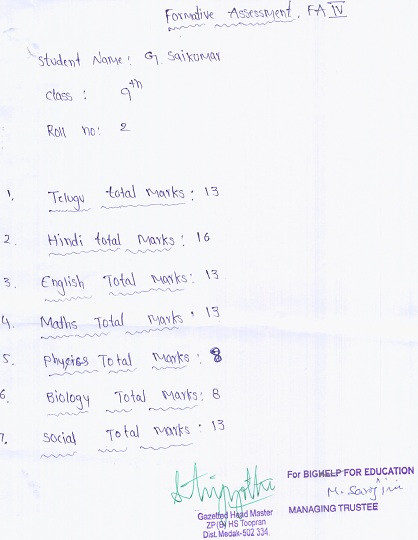 Formative Assessment, FA IV
Student Name: G. Saikumar
Class : 9th
Roll no: 2
1. Telugu total Marks: 13
2. Hindi total Marks: 16
3. English Total Marks: 13
4. Maths Total Marks: 13
5. Physics Total Marks: 8
6. Biology Total Marks: 8
7. Social Total Marks: 13
For BIGHELP FOR EDUCATION
M. Sarojini
Gazetted Head Master
MANAGING TRUSTEE
ZP(B) HS Toopran
Dist. Medak-502 334